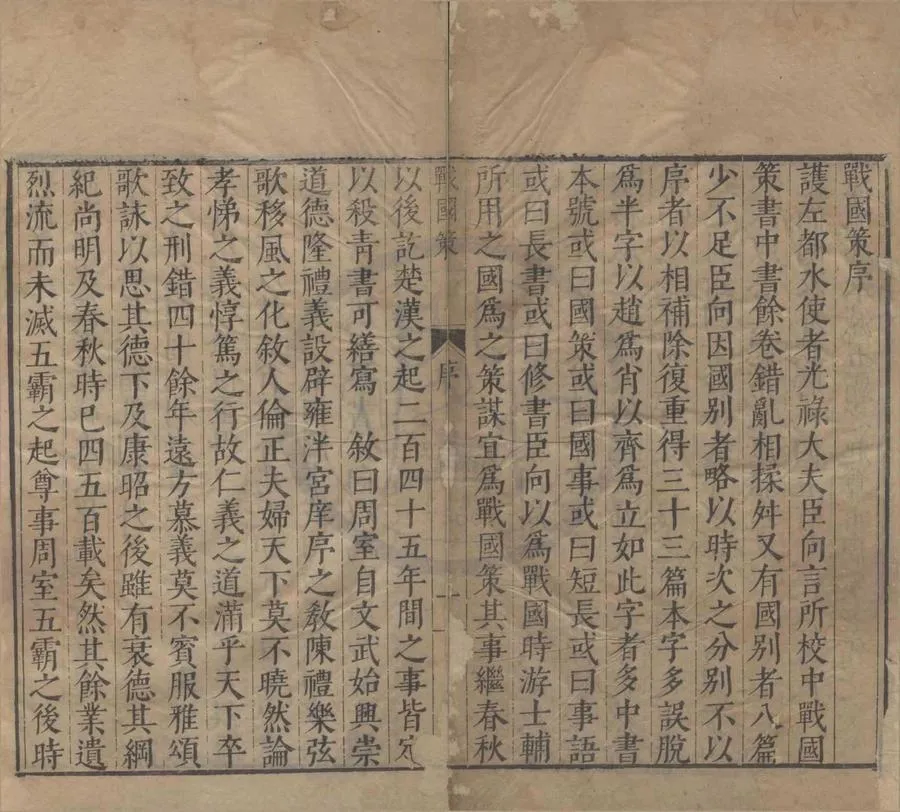 戰國策序
護左都水使者光祿大夫臣向言所校中戰國
策書中書餘卷錯亂相揉舛又有國别者八篇
少不足臣向因國别者略以時次之分别不以
序者以相補除復重得三十三篇本字多誤脫
爲半字以趙爲肖以齊爲立如此字者多中書
本號或曰國策或曰國事或曰短長或曰事語
或曰長書或曰修書臣向以爲戰國時游士輔
所用之國爲之策謀宜爲戰國策其事繼春秋
戰國策
序
一
以後訖楚漢之起二百四十五年間之事皆定
以殺青書可繕寫 敘曰周室自文武始興崇
道德隆禮義設辟雍泮宮庠序之敎陳禮樂弦
歌移風之化敘人倫正夫婦天下莫不曉然論
孝悌之義惇篤之行故仁義之道滿乎天下卒
致之刑錯四十餘年遠方慕義莫不賓服雅頌
歌詠以思其德下及康昭之後雖有衰德其綱
紀尚明及春秋時已四五百載矣然其餘業遺
烈流而未滅五霸之起尊事周室五霸之後時